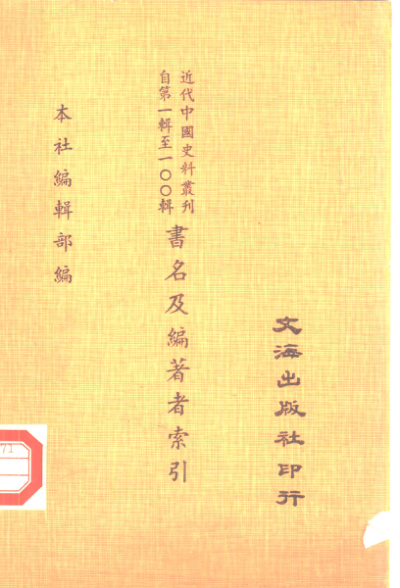 近代中國史料叢刊
自第一輯至一〇〇輯
書名及編著者索引
本社編輯部編
文海出版社印行
71